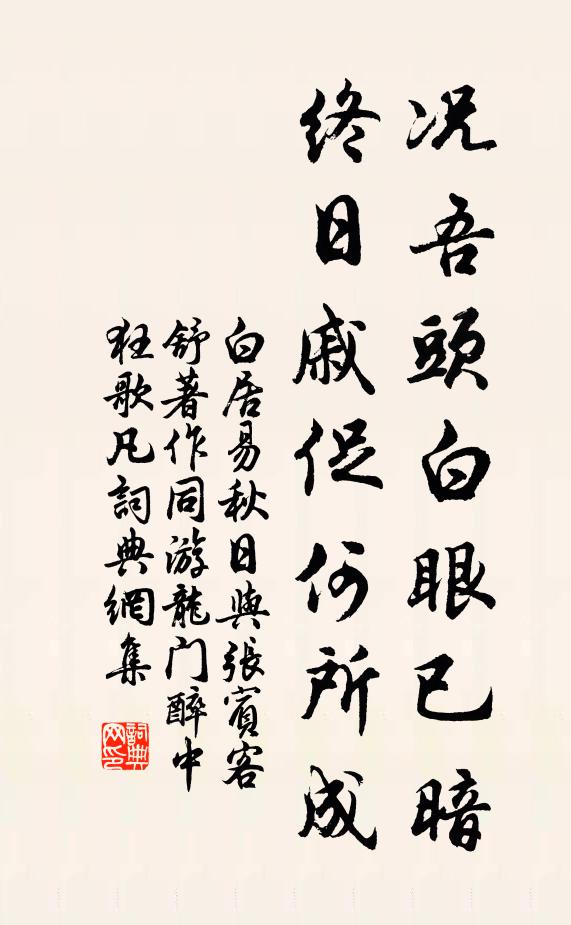 况吾頭白眼已暗
終日戚促何所成
白居易秋日與張賓客
舒著作同游龍门醉中
狂歌凡詞典網集
詞典
网印